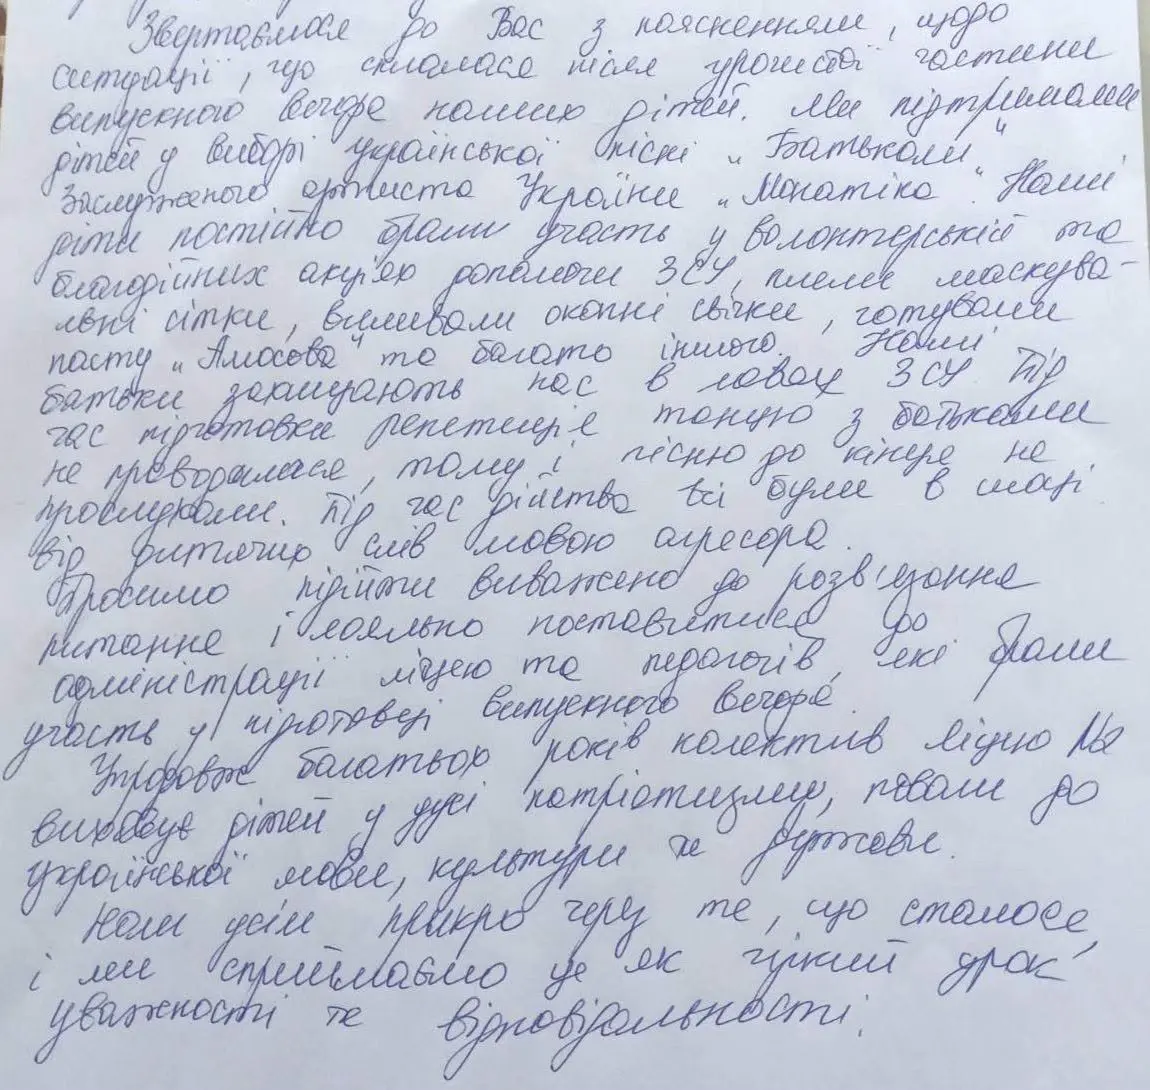 Звертаємося до Вас з поясненням, щодо
ситуації, що склалася після урочистої частини
випускного вечора наших дітей. Ми підтримали
дітей у виборі української пісні „Батьками"
Заслуженого артиста України „Монатіка". Наші
діти постійно брали участь у волонтерській та
благодійних акціях допомоги ЗСУ, плели маскува-
льні сітки, виливали окопні свічки, готували
пасту „Амосова" та багато іншого. Наші
батьки захищають нас в лавах ЗСУ. Під
час підготовки репетиція танцю з батьками
не проводилася, тому і пісню до кінця не
прослухали. Під час дійства всі були в шоці
від дитячих слів мовою агресора.
Просимо підійти виважено до розв'язання
питання і лояльно поставитися до
адміністрації ліцею та педагогів, які брали
участь у підготовці випускного вечора.
Упродовж багатьох років колектив ліцею №2
виховує дітей у дусі патріотизму, поваги до
української мови, культури та держави.
Нам усім прикро через те, що сталося,
і ми сприймаємо це як гіркий урок
уважності та відповідальності.